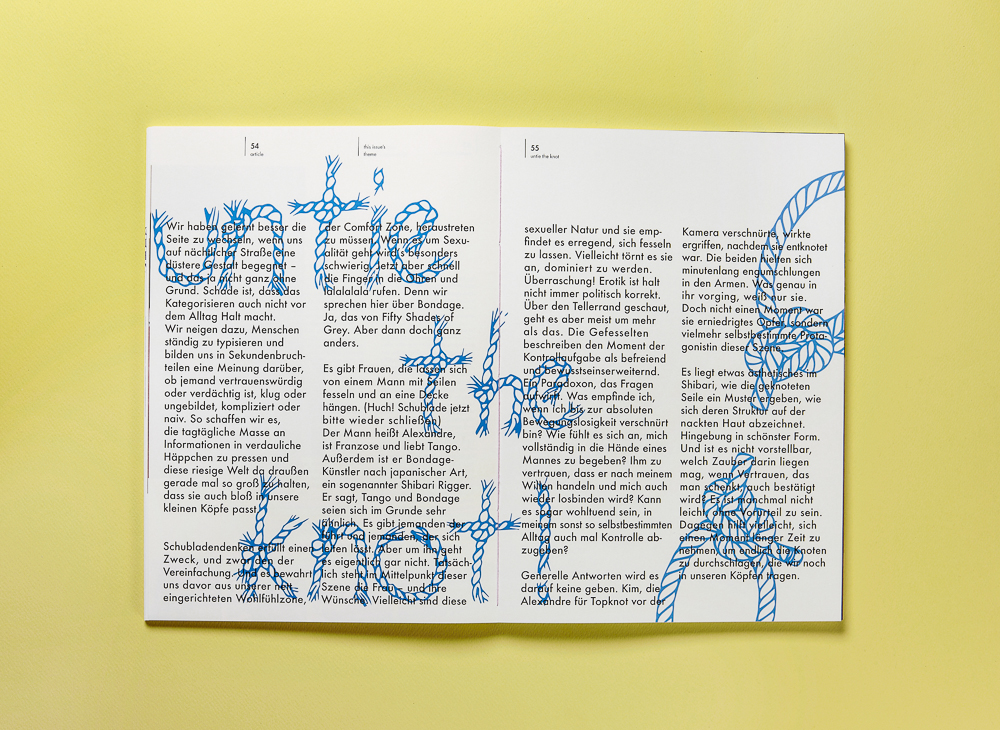 54
article
this issue's
theme
untie
the
knot!
Wir haben gelernt besser die
Seite zu wechseln, wenn uns
auf nächtlicher Straße eine
düstere Gestalt begegnet –
und das ja nicht ganz ohne
Grund. Schade ist, dass das
Kategorisieren auch nicht vor
dem Alltag Halt macht.
Wir neigen dazu, Menschen
ständig zu typisieren und
bilden uns in Sekundenbruch-
teilen eine Meinung darüber,
ob jemand vertrauenswürdig
oder verdächtig ist, klug oder
ungebildet, kompliziert oder
naiv. So schaffen wir es,
die tagtägliche Masse an
Informationen in verdauliche
Häppchen zu pressen und
diese riesige Welt da draußen
gerade mal so groß zu halten,
dass sie auch bloß in unsere
kleinen Köpfe passt.
Schubladendenken erfüllt einen
Zweck, und zwar den der
Vereinfachung. Und es bewahrt
uns davor aus unserer nett
eingerichteten Wohlfühlzone,
der Comfort Zone, heraustreten
zu müssen. Wenn es um Sexu-
alität geht wird's besonders
schwierig. Jetzt aber schnell
die Finger in die Ohren und
lalalalala rufen. Denn wir
sprechen hier über Bondage.
Ja, das von Fifty Shades of
Grey. Aber dann doch ganz
anders.
Es gibt Frauen, die lassen sich
von einem Mann mit Seilen
fesseln und an eine Decke
hängen. (Huch! Schublade jetzt
bitte wieder schließen)
Der Mann heißt Alexandre,
ist Franzose und liebt Tango.
Außerdem ist er Bondage-
Künstler nach japanischer Art,
ein sogenannter Shibari Rigger.
Er sagt, Tango und Bondage
seien sich im Grunde sehr
ähnlich. Es gibt jemanden der
führt und jemanden, der sich
leiten lässt. Aber um ihn geht
es eigentlich gar nicht. Tatsäch-
lich steht im Mittelpunkt dieser
Szene die Frau – und ihre
Wünsche. Vielleicht sind diese
55
untie the knot
sexueller Natur und sie emp-
findet es erregend, sich fesseln
zu lassen. Vielleicht törnt es sie
an, dominiert zu werden.
Überraschung! Erotik ist halt
nicht immer politisch korrekt.
Über den Tellerrand geschaut,
geht es aber meist um mehr
als das. Die Gefesselten
beschreiben den Moment der
Kontrollaufgabe als befreiend
und bewusstseinserweiternd.
Ein Paradoxon, das Fragen
aufwirft. Was empfinde ich,
wenn ich bis zur absoluten
Bewegungslosigkeit verschnürt
bin? Wie fühlt es sich an, mich
vollständig in die Hände eines
Mannes zu begeben? Ihm zu
vertrauen, dass er nach meinem
Willen handeln und mich auch
wieder losbinden wird? Kann
es sogar wohltuend sein, in
meinem sonst so selbstbestimmten
Alltag auch mal Kontrolle ab-
zugeben?
Generelle Antworten wird es
darauf keine geben. Kim, die
Alexandre für Topknot vor der
Kamera verschnürte, wirkte
ergriffen, nachdem sie entknotet
war. Die beiden hielten sich
minutenlang engumschlungen
in den Armen. Was genau in
ihr vorging, weiß nur sie.
Doch nicht einen Moment war
sie erniedrigtes Opfer, sondern
vielmehr selbstbestimmte Prota-
gonistin dieser Szene.
Es liegt etwas ästhetisches im
Shibari, wie die geknoteten
Seile ein Muster ergeben, wie
sich deren Struktur auf der
nackten Haut abzeichnet.
Hingebung in schönster Form.
Und ist es nicht vorstellbar,
welch Zauber darin liegen
mag, wenn Vertrauen, das
man schenkt, auch bestätigt
wird? Es ist manchmal nicht
leicht, ohne Vorurteil zu sein.
Dagegen hilft vielleicht, sich
einen Moment länger Zeit zu
nehmen, um endlich die Knoten
zu durchschlagen, die wir noch
in unseren Köpfen tragen.